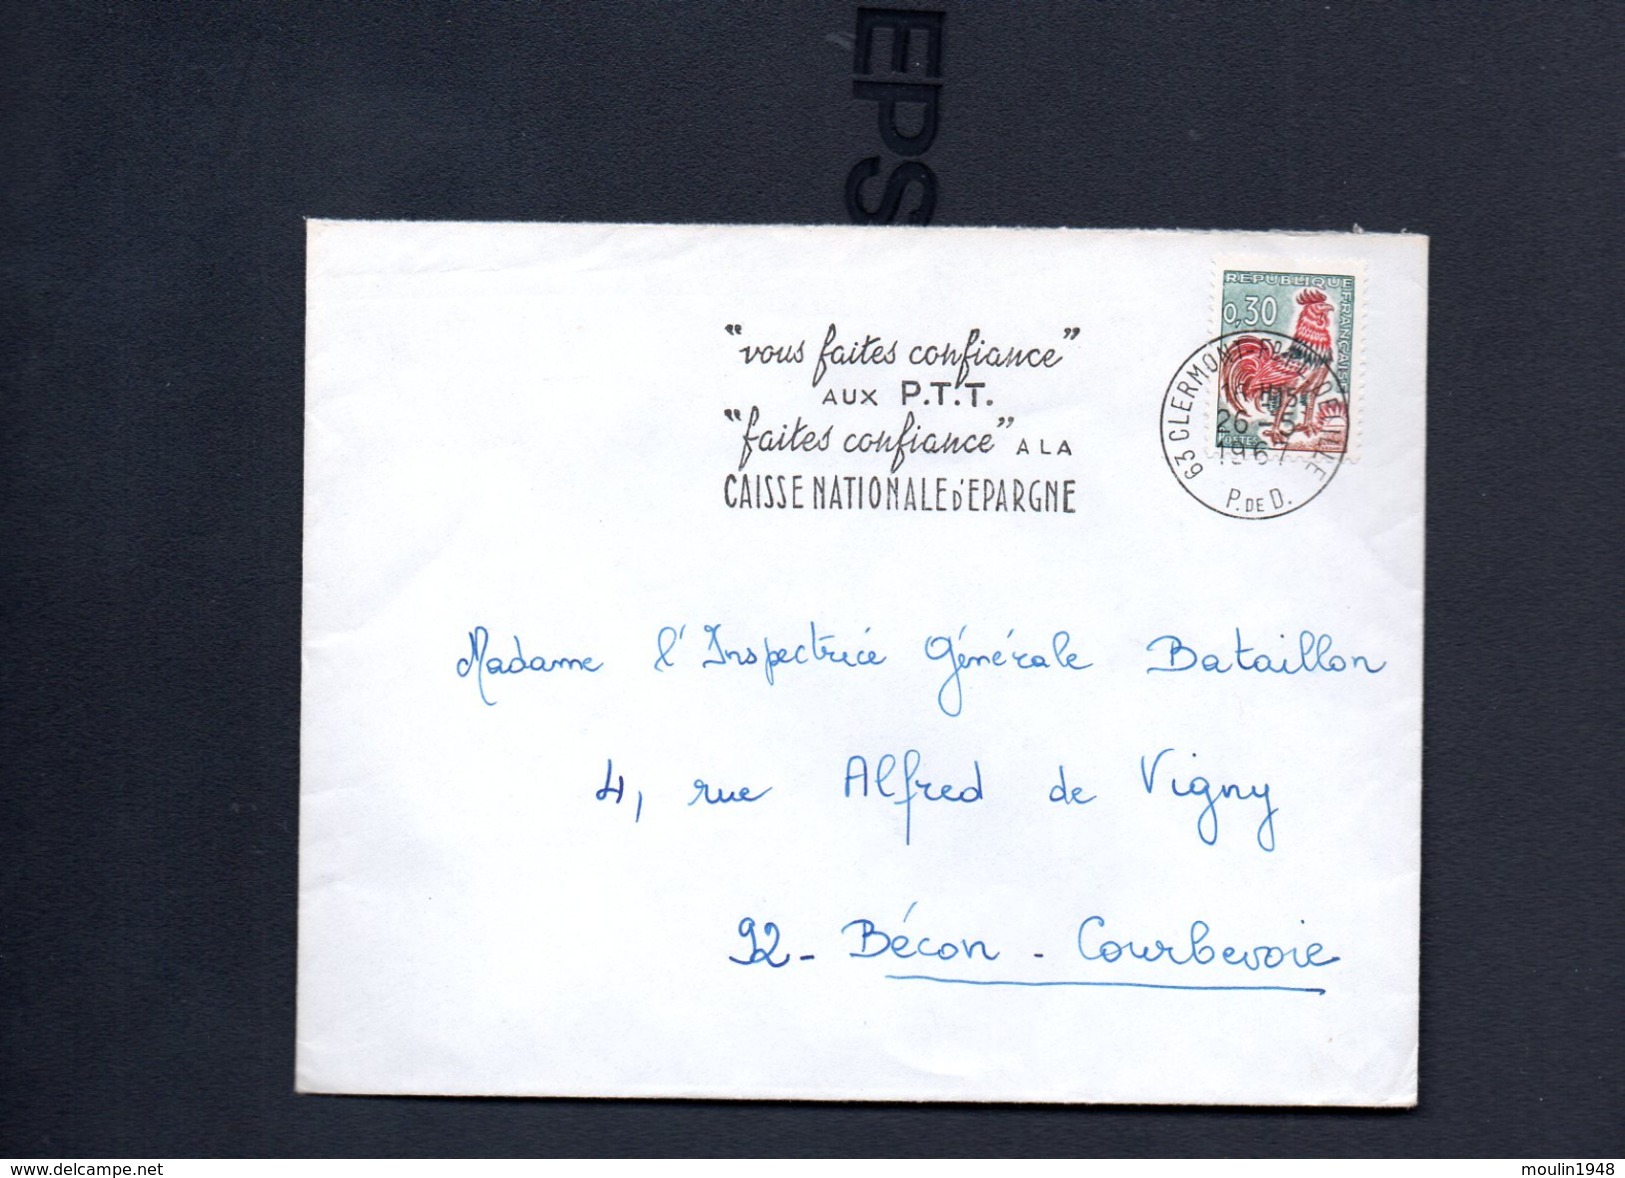 EPS
REPUBLIQUE FRANCAISE
0,30
POSTES
"vous faites confiance"
AUX P.T.T.
"faites confiance" A LA
CAISSE NATIONALE D'EPARGNE
63 CLERMONT FD
26 -5
1967
P. DE D.
Madame l'Inspectrice Générale Bataillon
4, rue Alfred de Vigny
92 - Bécon - Courbevoie
www.delcampe.net
moulin1948